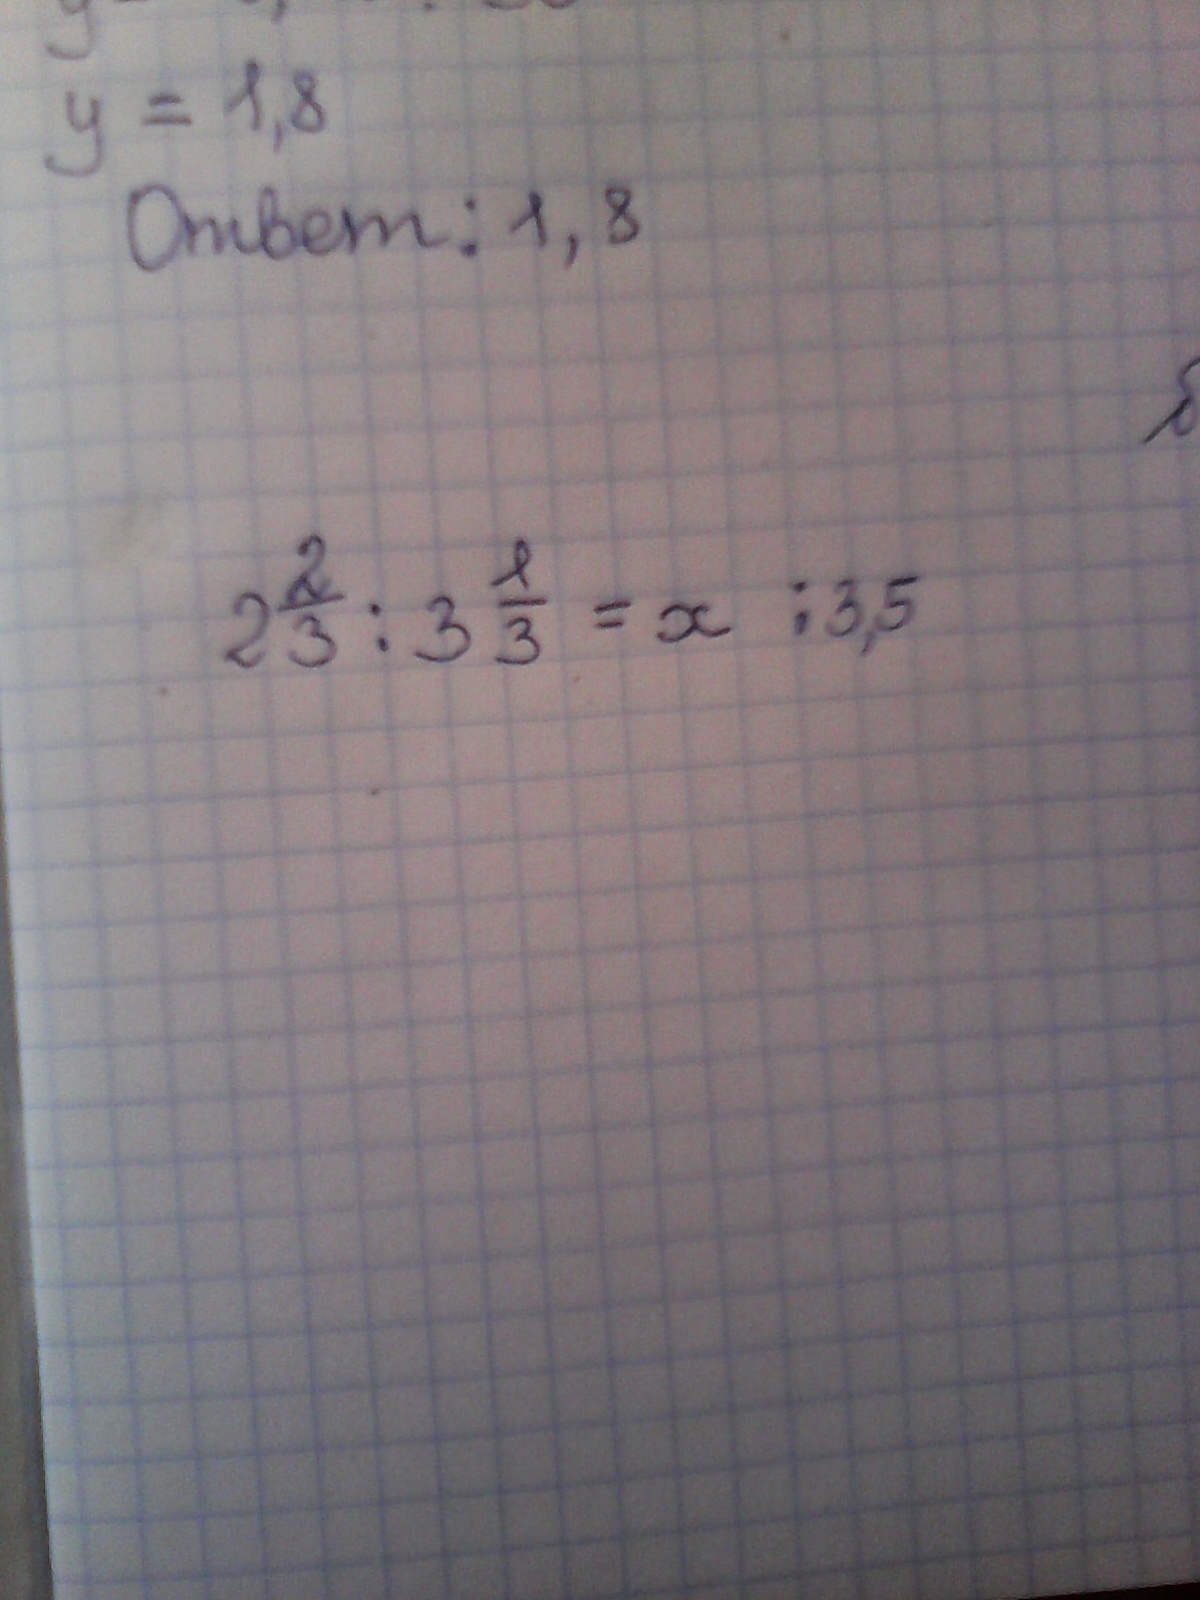 y = 1,8
Ответ: 1,8
2 2/3 : 3 1/3 = x : 3,5